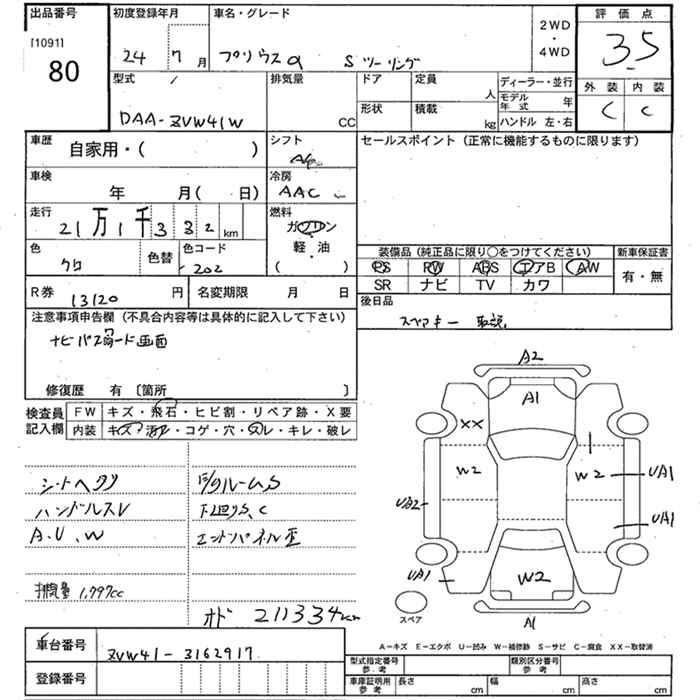 出品番号 初度登録年月 車名・グレード 2WD・4WD 評価点
[1091] 80 24年 7月 プリウスα Sツーリング 3.5
外装 内装
C C
型式 排気量 ドア 定員 人 ディーラー・並行
DAA-ZVW41W CC 形状 積載 kg モデル年式 年
ハンドル 左・右
車歴 自家用・( ) シフト セールスポイント（正常に機能するものに限ります）
車検 年 月( 日) 冷房 AAC
走行 21万1千332km 燃料 ガソリン・軽・油 ( )
色 クロ 色替 色コード 202
装備品（純正品に限り○をつけてください） 新車保証書
PS PW ABS エアB AW 有・無
SR ナビ TV カワ
R券 13120円 名変期限 月 日 後日品
スペアキー 取説
注意事項申告欄（不具合内容等は具体的に記入して下さい）
ナビパスワード画面
修復歴 有 〔箇所 〕
検査員記入欄 FW キズ・飛石・ヒビ割・リペア跡・X要
内装 キズ・汚レ・コゲ・穴・スレ・キレ・破レ
シートヘタリ
ハンドルスレ
A.U.W
排気量 1,797cc
E/GルームS
下回りS、C
エンドパネル歪
オド 211334km
A2
A1
XX
W2 W2 UA1
UA2 UA1
UA1 W2
A1
スペア
A－キズ E－エクボ U－凹み W－補修跡 S－サビ C－腐食 XX－取替済
車台番号 ZVW41-3162917
登録番号
型式指定番号 参考 類別区分番号 参考
車庫証明用 参考 長さ cm 幅 cm 高さ cm